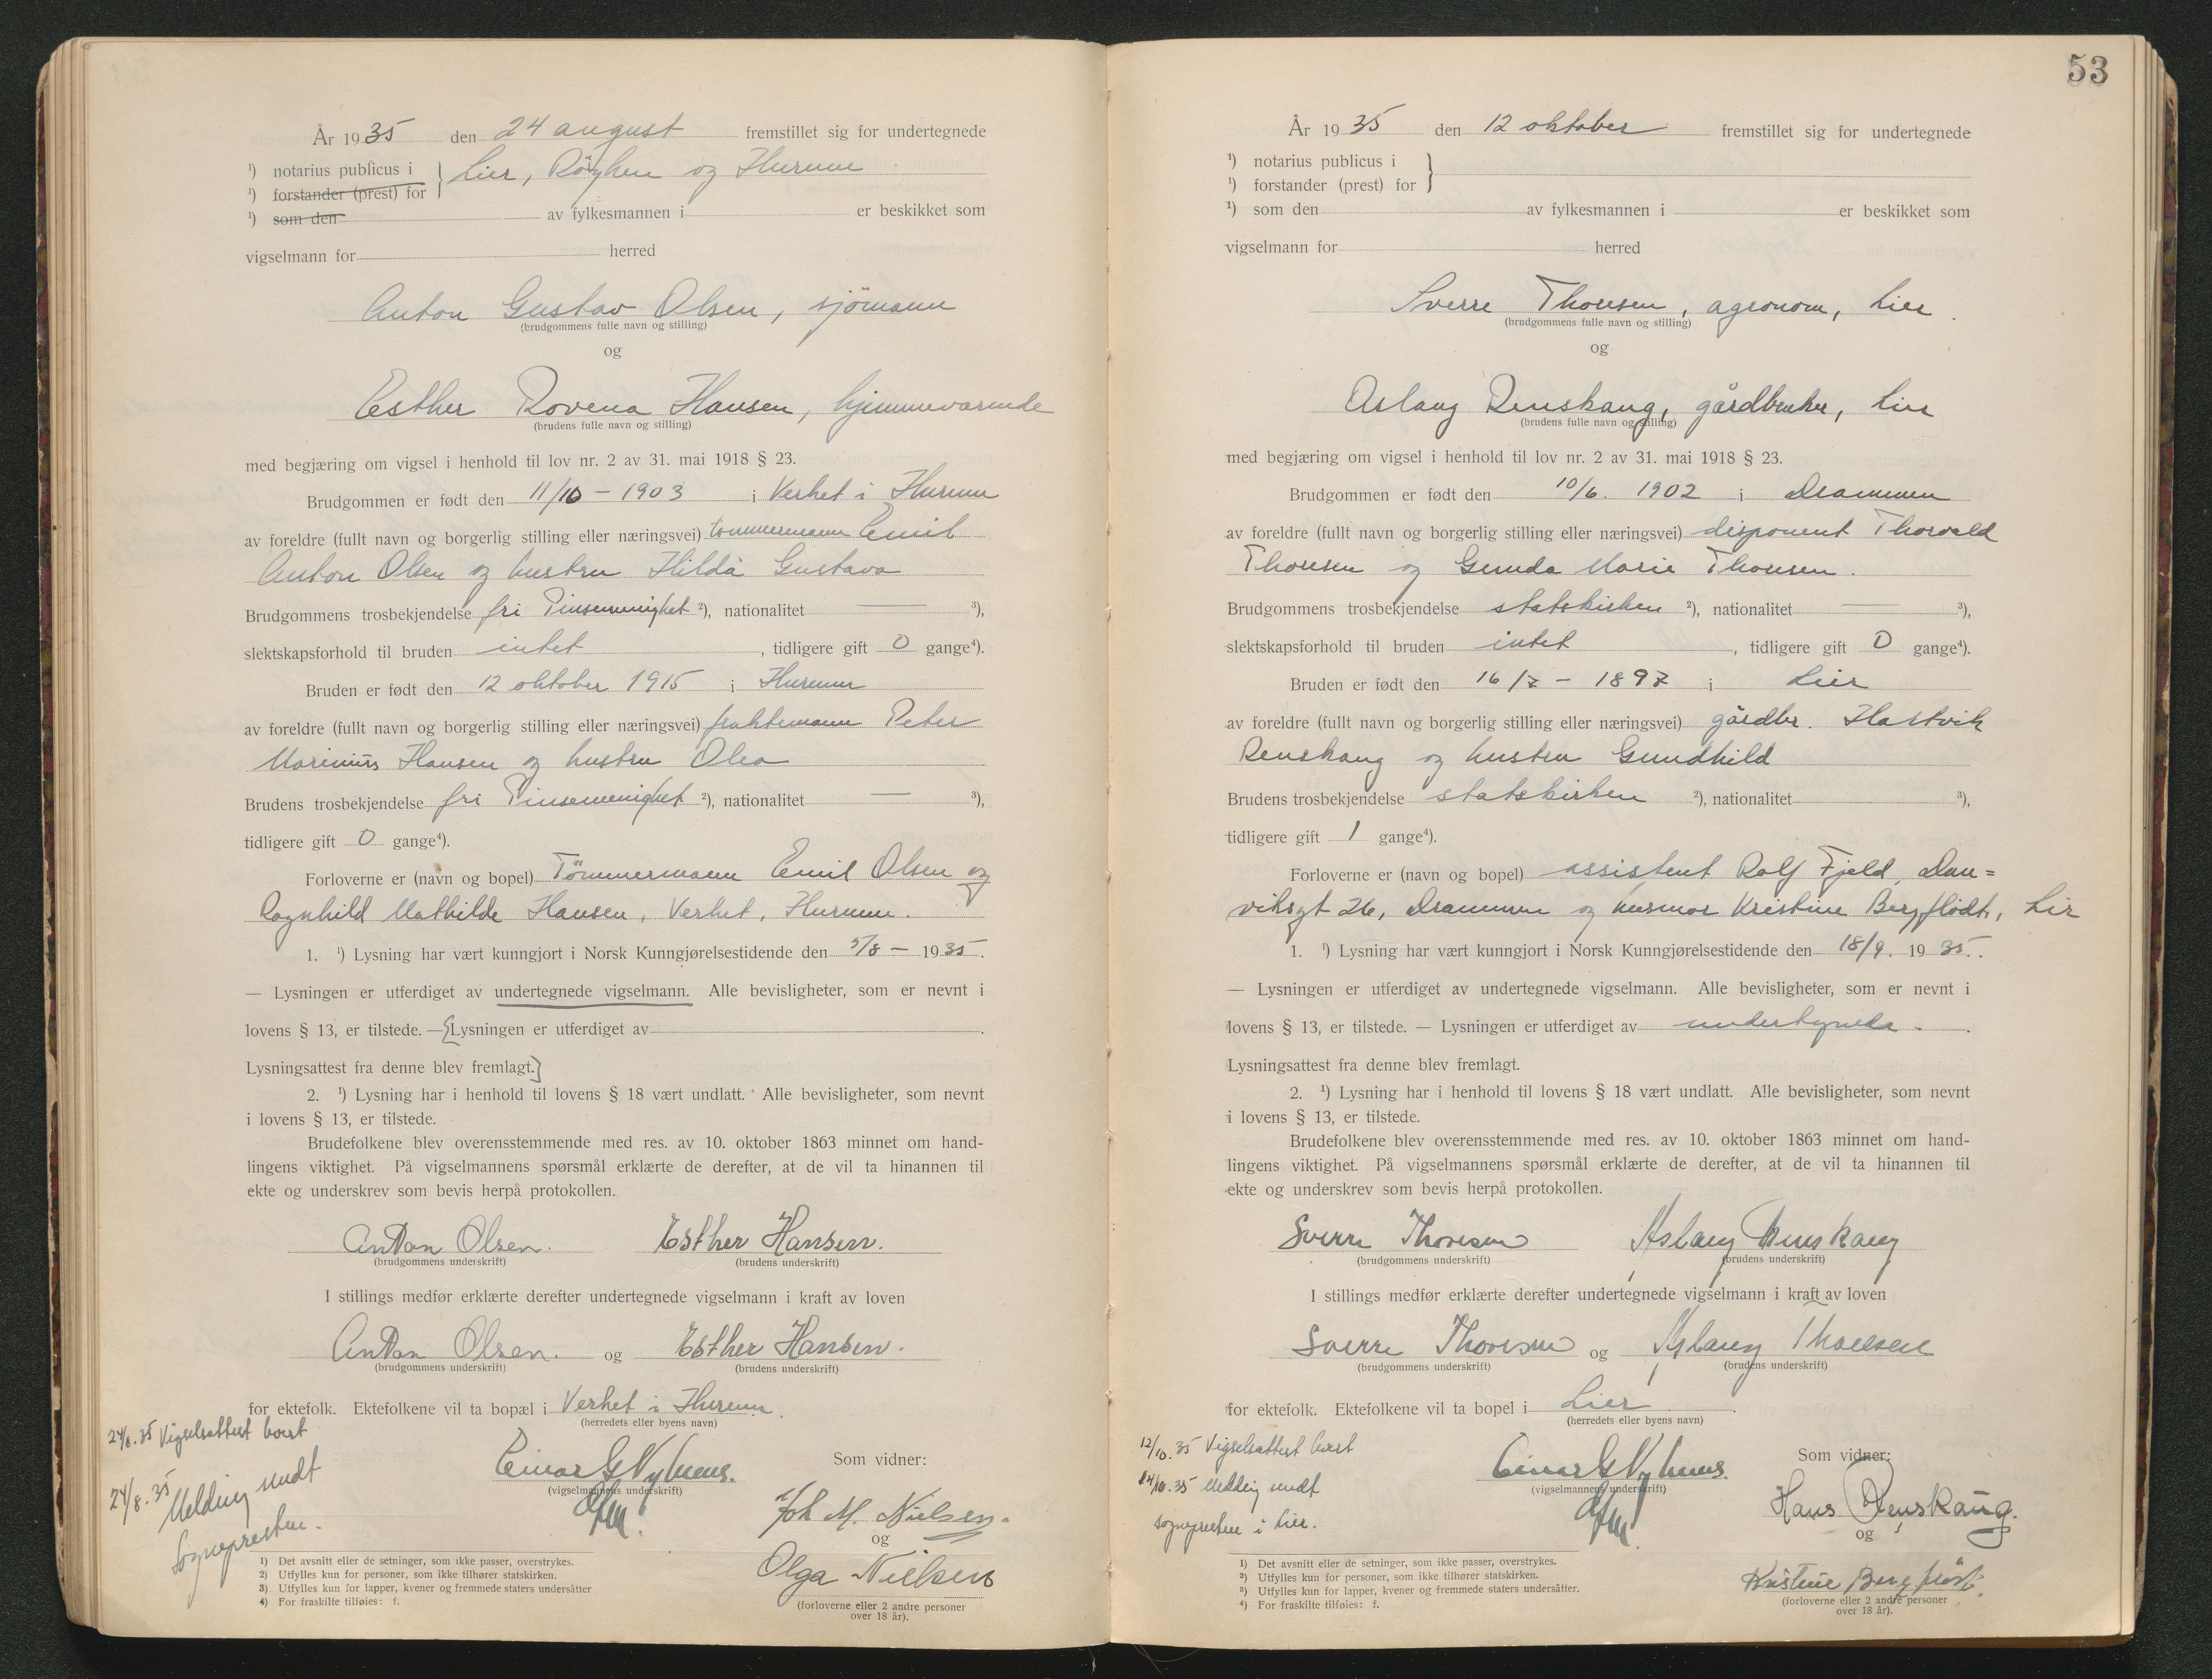 År 1935 den 24 august fremstillet sig for undertegnede
¹) notarius publicus i } Lier, Røyken og Hurum
¹) forstander (prest) for
¹) som den av fylkesmannen i er beskikket som
vigselmann for herred
Anton Gustav Olsen, sjömann
(brudgommens fulle navn og stilling)
og
Esther Rovena Hansen, hjemmeværende
(brudens fulle navn og stilling)
med begjæring om vigsel i henhold til lov nr. 2 av 31. mai 1918 § 23.
Brudgommen er født den 11/10 - 1903 i Verket i Hurum
av foreldre (fullt navn og borgerlig stilling eller næringsvei) tømmermann Emil
Anton Olsen og hustru Hilda Gustava
Brudgommens trosbekjendelse fri Pinsemenighet ²), nationalitet — ³),
slektskapsforhold til bruden intet, tidligere gift 0 gange⁴).
Bruden er født den 12 oktober 1915 i Hurum
av foreldre (fullt navn og borgerlig stilling eller næringsvei) fraktemann Peter
Marinius Hansen og hustru Olea
Brudens trosbekjendelse fri Pinsemenighet ²), nationalitet — ³),
tidligere gift 0 gange⁴).
Forloverne er (navn og bopel) Tömmermann Emil Olsen og
Ragnhild Mathilde Hansen, Verket, Hurum.
1. ¹) Lysning har vært kunngjort i Norsk Kunngjørelsestidende den 5/8 — 1935.
— Lysningen er utferdiget av undertegnede vigselmann. Alle bevisligheter, som er nevnt i
lovens § 13, er tilstede. — [Lysningen er utferdiget av .
Lysningsattest fra denne blev fremlagt.]
2. ¹) Lysning har i henhold til lovens § 18 vært undlatt. Alle bevisligheter, som nevnt
i lovens § 13, er tilstede.
Brudefolkene blev overensstemmende med res. av 10. oktober 1863 minnet om hand-
lingens viktighet. På vigselmannens spørsmål erklærte de derefter, at de vil ta hinannen til
ekte og underskrev som bevis herpå protokollen.
Anton Olsen. Esther Hansen.
(brudgommens underskrift) (brudens underskrift)
I stillings medfør erklærte derefter undertegnede vigselmann i kraft av loven
Anton Olsen. og Esther Hansen.
(brudgommens underskrift) (brudens underskrift)
for ektefolk. Ektefolkene vil ta bopæl i Verket i Hurum.
(herredets eller byens navn)
24/8.35 Vigselsattest
24/8.35 Melding sendt
Sognepresten.
Einar G Nyhuus.
(vigselmannens underskrift)
Som vidner:
Joh M. Nielsen.
og
Olga Nielsen
(forloverne eller 2 andre personer
over 18 år).
1) Det avsnitt eller de setninger, som ikke passer, overstrykes.
2) Utfylles kun for personer, som ikke tilhører statskirken.
3) Utfylles kun for lapper, kvener og fremmede staters undersåtter
4) For fraskilte tilføies: f.
53
År 1935 den 12 oktober fremstillet sig for undertegnede
¹) notarius publicus i }
¹) forstander (prest) for
¹) som den av fylkesmannen i er beskikket som
vigselmann for herred
Sverre Thoresen, agronom, Lier.
(brudgommens fulle navn og stilling)
og
Aslaug Renskaug, gårdbruker, Lier
(brudens fulle navn og stilling)
med begjæring om vigsel i henhold til lov nr. 2 av 31. mai 1918 § 23.
Brudgommen er født den 10/6. 1902 i Drammen
av foreldre (fullt navn og borgerlig stilling eller næringsvei) disponent Thorvald
Thoresen og Gunda Marie Thoresen.
Brudgommens trosbekjendelse statskirken ²), nationalitet — ³),
slektskapsforhold til bruden intet, tidligere gift 0 gange⁴).
Bruden er født den 16/7 - 1897 i Lier
av foreldre (fullt navn og borgerlig stilling eller næringsvei) gårdbr. Hartvik
Renskaug og hustru Gundhild
Brudens trosbekjendelse statskirken ²), nationalitet ³),
tidligere gift 1 gange⁴).
Forloverne er (navn og bopel) assistent Rolf Fjeld, Dan=
viksgt 26, Drammen og husmor Kristine Bergflødt, Lier
1. ¹) Lysning har vært kunngjort i Norsk Kunngjørelsestidende den 18/9. 1935.
— Lysningen er utferdiget av undertegnede vigselmann. Alle bevisligheter, som er nevnt i
lovens § 13, er tilstede. — Lysningen er utferdiget av undertegnede.
Lysningsattest fra denne blev fremlagt.
2. ¹) Lysning har i henhold til lovens § 18 vært undlatt. Alle bevisligheter, som nevnt
i lovens § 13, er tilstede.
Brudefolkene blev overensstemmende med res. av 10. oktober 1863 minnet om hand-
lingens viktighet. På vigselmannens spørsmål erklærte de derefter, at de vil ta hinannen til
ekte og underskrev som bevis herpå protokollen.
Sverre Thoresen Aslaug Renskaug
(brudgommens underskrift) (brudens underskrift)
I stillings medfør erklærte derefter undertegnede vigselmann i kraft av loven
Sverre Thoresen og Aslaug Thoresen
(brudgommens underskrift) (brudens underskrift)
for ektefolk. Ektefolkene vil ta bopel i Lier.
(herredets eller byens navn)
12/10.35 Vigselsattest
14/10.35 Melding sendt
sognepresten i Lier.
Einar G Nyhuus.
(vigselmannens underskrift)
Som vidner:
Hans Renskaug.
og
Kristine Bergflødt.
(forloverne eller 2 andre personer
over 18 år).
¹) Det avsnitt eller de setninger, som ikke passer, overstrykes.
²) Utfylles kun for personer, som ikke tilhører statskirken.
³) Utfylles kun for lapper, kvener og fremmede staters undersåtter.
⁴) For fraskilte tilføies: f.